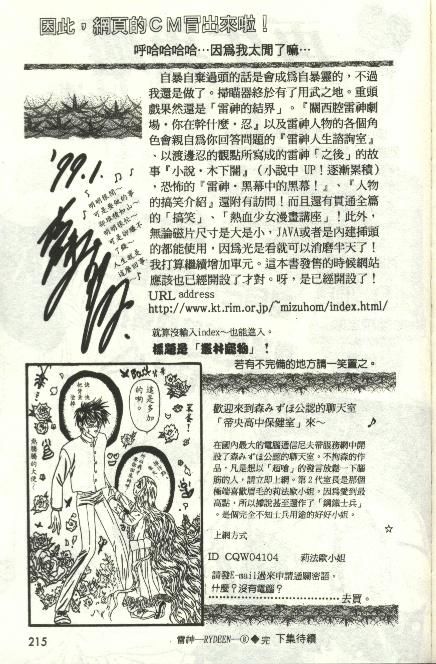 因此，網頁的ＣＭ冒出來啦！
呼哈哈哈哈…因為我太閒了嘛…
自暴自棄過頭的話是會成為自暴靈的，不過
我還是做了。掃瞄器終於有了用武之地。重頭
戲果然還是「雷神的結界」。『關西腔雷神劇
場・你在幹什麼・忍』以及雷神人物的各個角
色會親自為你回答問題的『雷神人生諮詢室』
、以渡邊忍的觀點所寫成的雷神「之後」的故
事『小說・木下闇』（小說中UP！逐漸累積）
，恐怖的『雷神・黑幕中的黑幕！』、『人物
的搞笑介紹』還附有訪問！而且還有貫通全篇
的「搞笑」、「熱血少女漫畫講座」！此外，
無論磁片尺寸是大是小，JAVA或者是內建掃頭
的都能使用，因為光是看就可以消磨半天了！
我打算繼續增加單元。這本書發售的時候網站
應該也已經開設了才對。呀，是已經開設了！
URL address
http://www.kt.rim.or.jp/~mizuhom/index.html/
就算沒輸入index～也能進入。
標題是「叢林寵物」！
若有不完備的地方請一笑置之。
'99.1.
明明很閒…
人生就是
這麼回事…
這是多加
的喲。
歡迎來到森みずほ公認的聊天室
「帝央高中保健室」來～
在國內最大的電腦通信尼夫帝服務網中開
設了森みずほ公認的聊天室。不拘森的作
品，凡是想以「超嗆」的發言放鬆一下腦
筋的人，請立即上網。第２代室長是那個
極端喜歡眉毛的莉法歐小姐。因為愛到最
高點，所以據說甚至還作了「鋼鐵士兵」
。是個完全不知士兵用途的好好小姐。
上網方式
ID CQW04104 莉法歐小姐
請發E-mail過來申請通關密語。
什麼？沒有電腦？
…去買。
215
雷神—RYDEEN—⑧◆完 下集待續